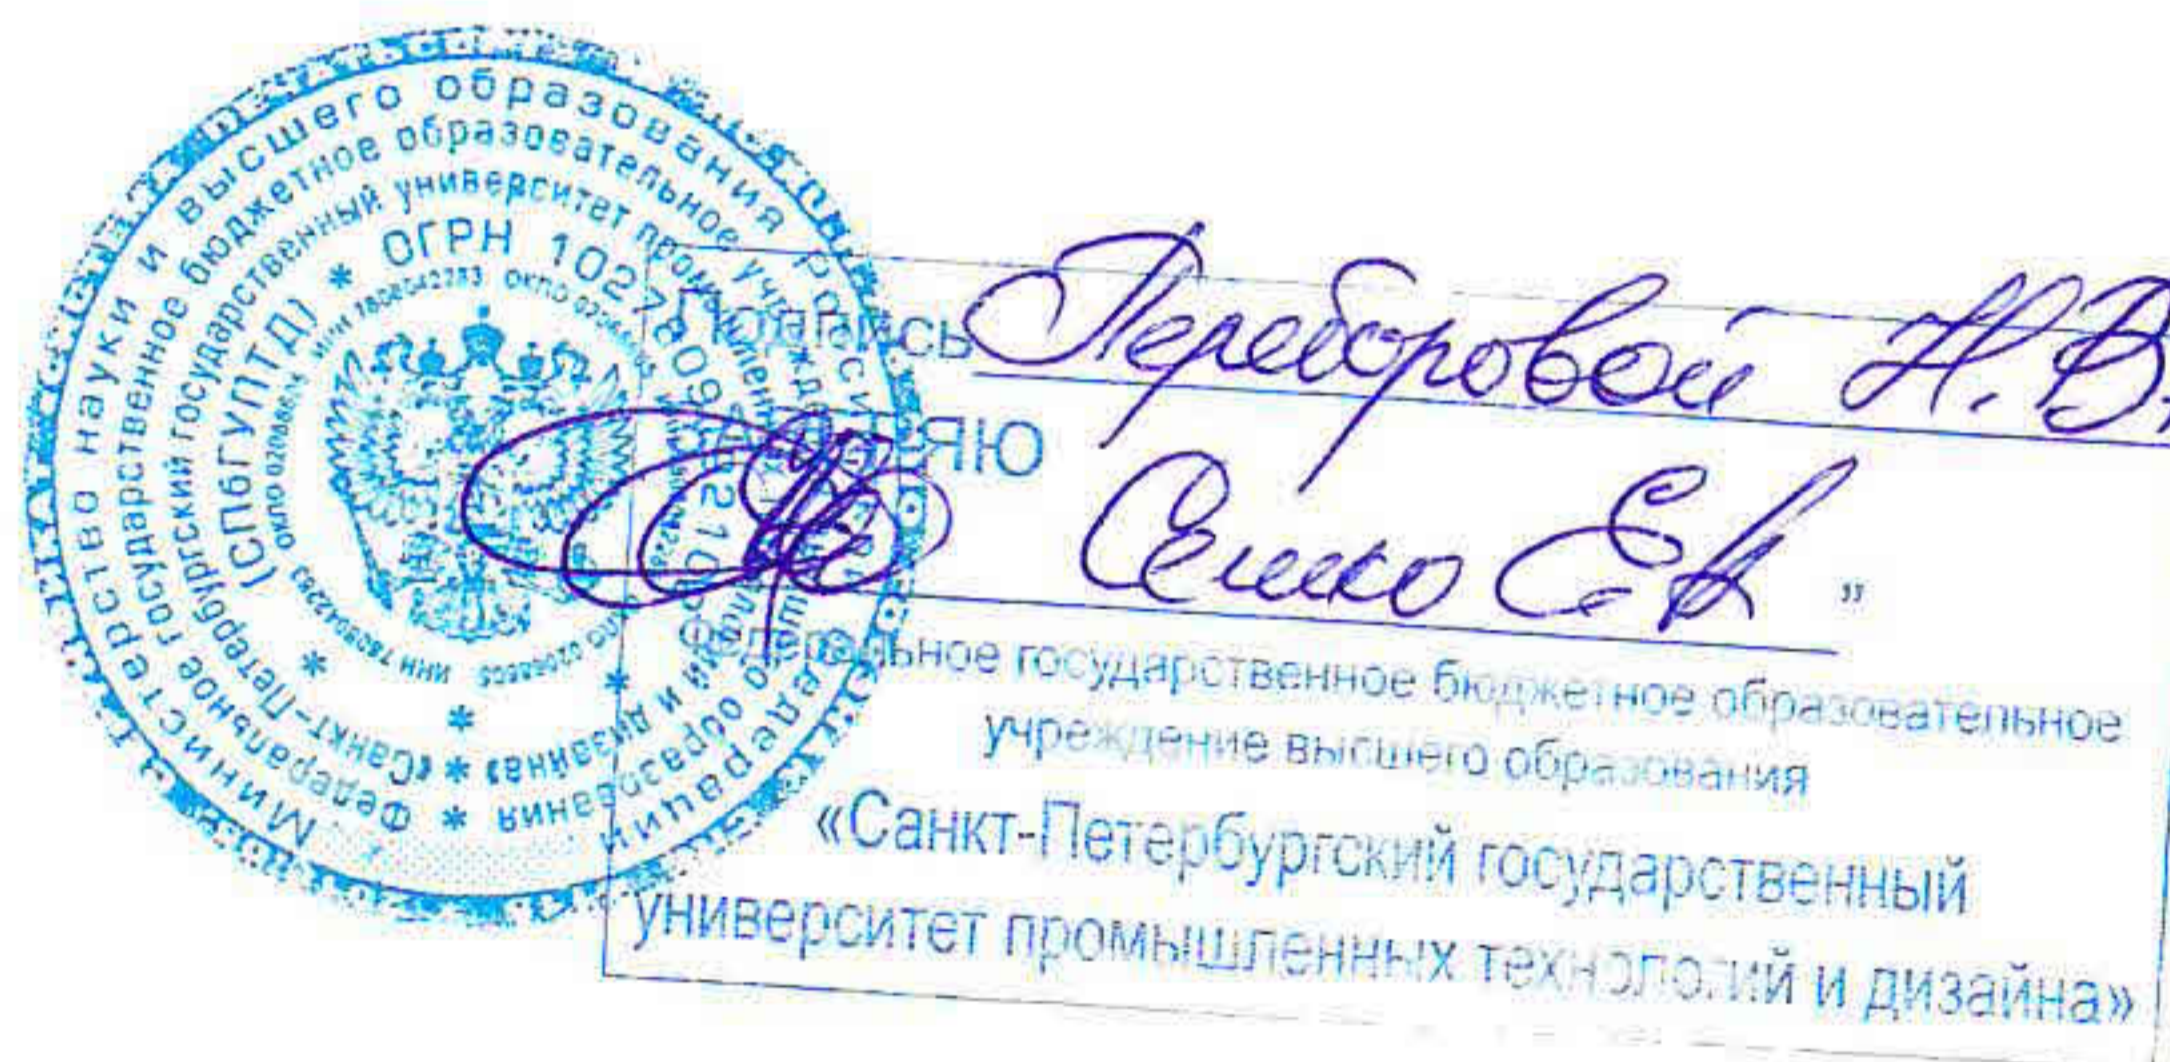 Министерство науки и высшего образования Российской Федерации
Федеральное государственное бюджетное образовательное учреждение высшего образования
«Санкт-Петербургский государственный университет промышленных технологий и дизайна»
(СПбГУПТД) * ОГРН
ИНН 7808042283 ОКПО 02068605
Подпись Переборовой Н.В.
ЯЮ
Е.А. "
федеральное государственное бюджетное образовательное
учреждение высшего образования
«Санкт-Петербургский государственный
университет промышленных технологий и дизайна»